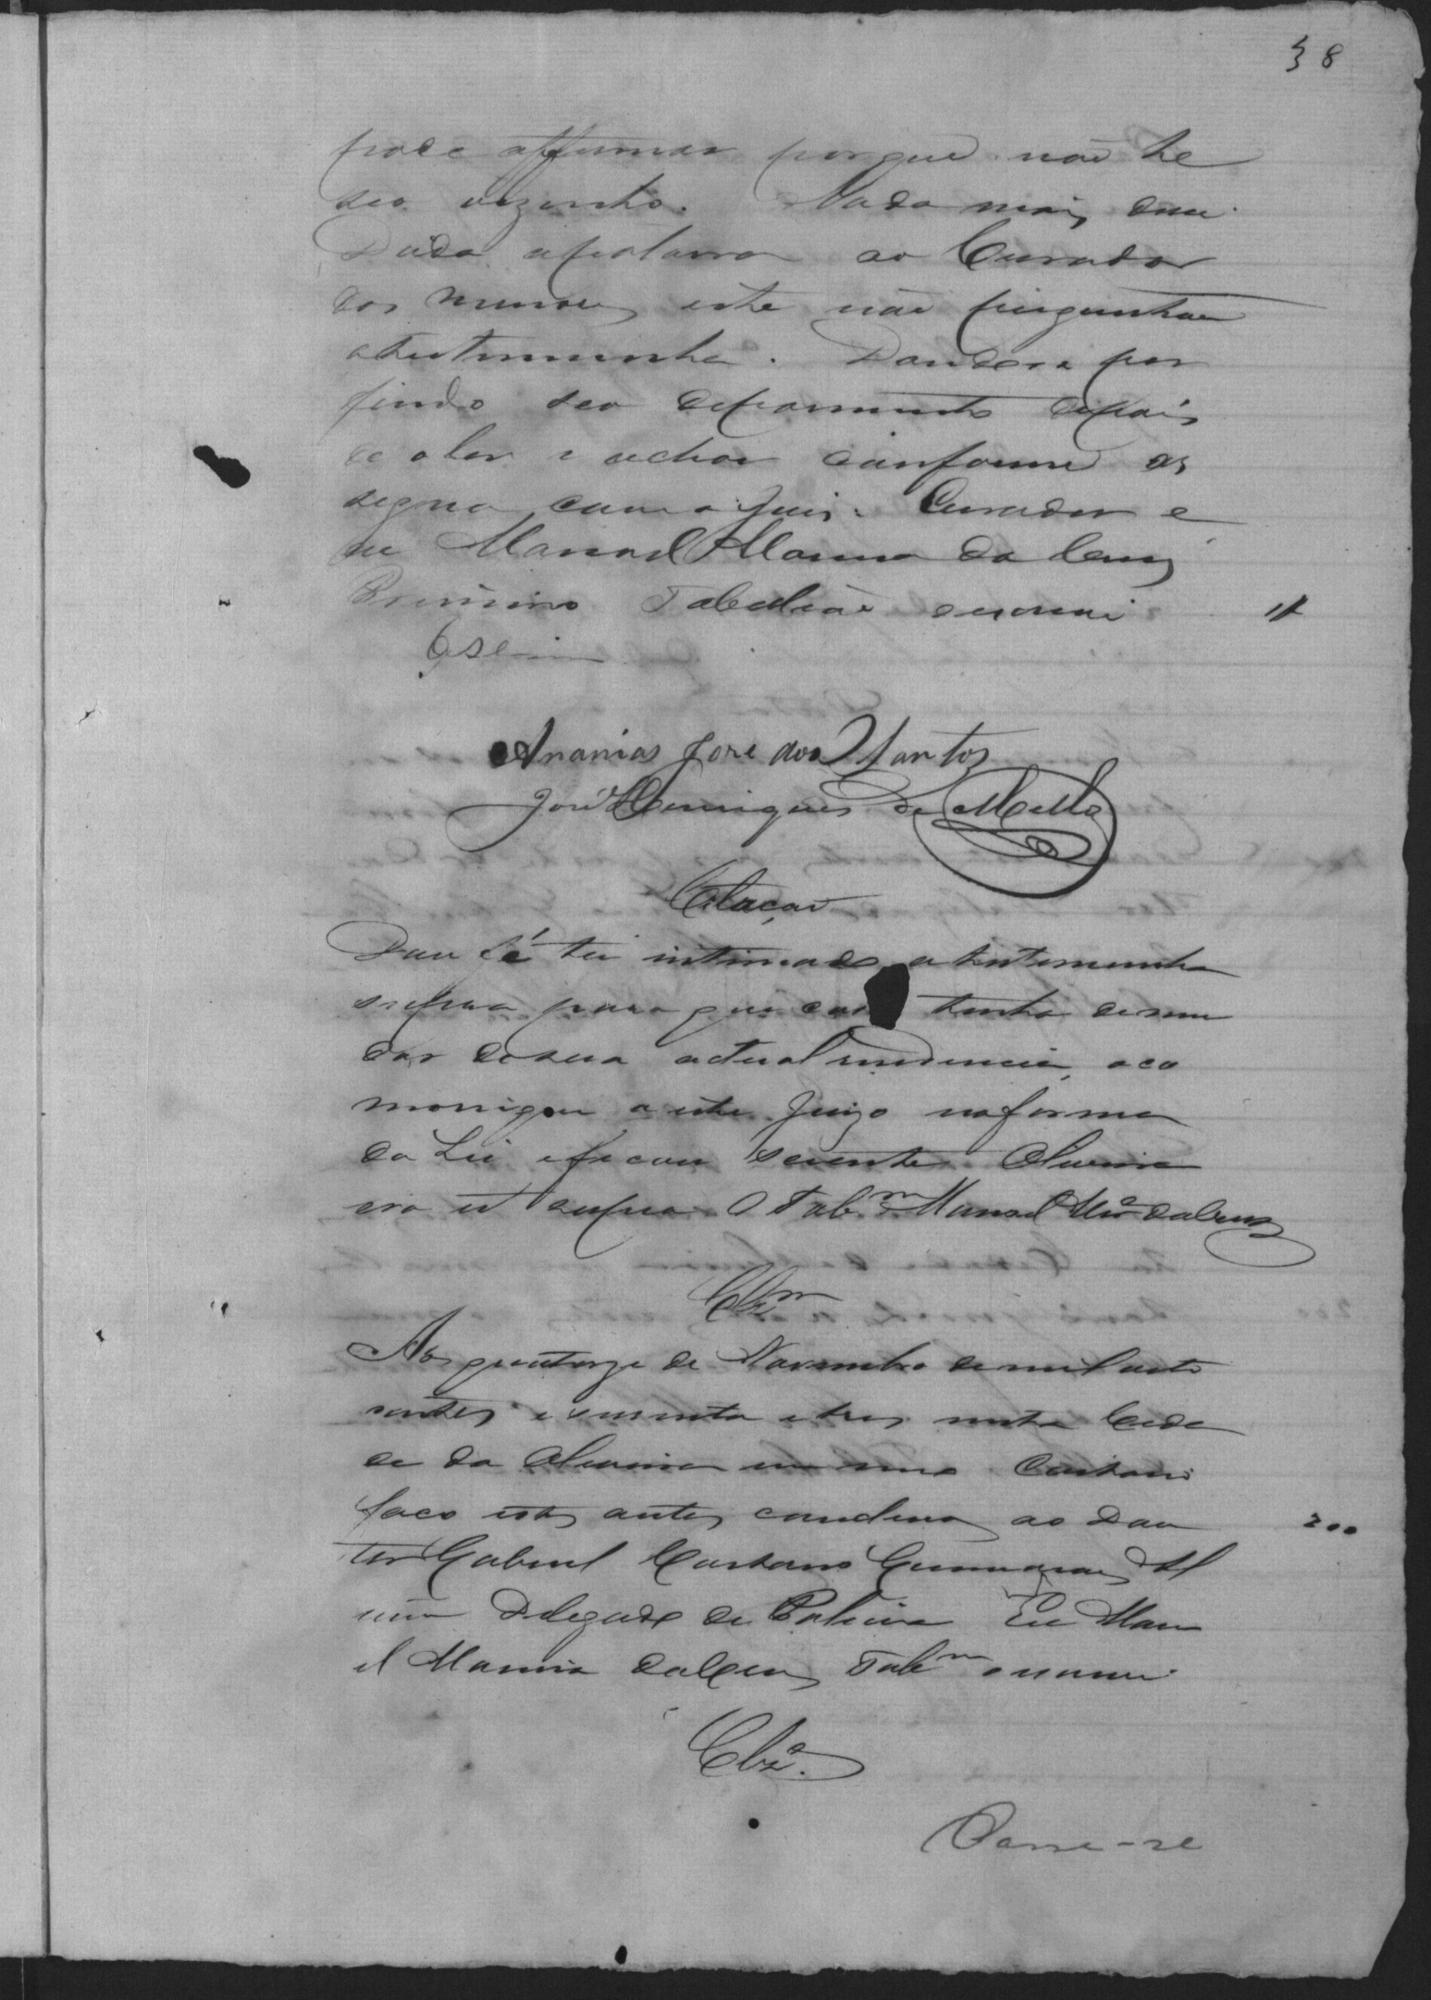 38
pode affirmar porque não he
seo vezinho. Nada mais disse.
Dada apalavra ao Curador
dos menores este não perguntou
atestemunha. Dandose por
findo seo depoimento depois
de oler e achar conforme as
signa com o Juis e Curador e
eu Manoel Marinno da Cruz
Tabelião escrevi
Ananias Jose dos Santos
José Domingues de Mello
Citação
Dou fé ter intimado atestemunha
supra para que caso tenha demu
dar desua actual residencia, oco
monique a este Juizo naforma
da Lei eficou sciente. Oliveira
era ut supra. O Tab.m Manoel Mar.o daCruz
Clz.m
Aos quatorze de Novembro demil oito
centos e noventa e tres nesta Cida
de da Oliveira em meu Cartorio
faco estes autos conclusos ao Dou
200
tor Gabriel Caetano Guimarães Al
vim Delegado de Policia Eu Mano
el Marinno daCruz Tab.m o escrevi.
Clz.o
Passe-se